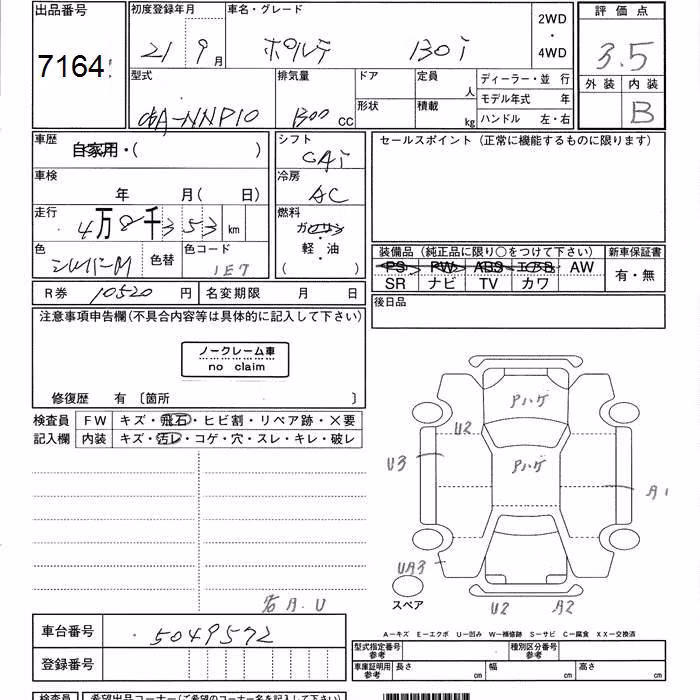 出品番号 初度登録年月 車名・グレード 2WD・4WD 評価点
7164 21 9月 ポルテ 130i 3.5
外装 内装
B
型式 排気量 ドア 定員 人 ディーラー・並行
形状 積載 kg モデル年式 年
ハンドル 左・右
NNP10 1300 CC
車歴 自家用・( ) シフト CAi セールスポイント(正常に機能するものに限ります)
車検 年 月( 日) 冷房 AC
走行 4万8千353km 燃料 ガソリン
軽・油
( )
色 シルバーM 色替 色コード 1E7
装備品(純正品に限り○をつけて下さい) 新車保証書
PS PW ABS エアB AW 有・無
SR ナビ TV カワ
R券 10520円 名変期限 月 日 後日品
注意事項申告欄(不具合内容等は具体的に記入して下さい)
ノークレーム車
no claim
修復歴 有〔箇所 〕
検査員 FW キズ・飛石・ヒビ割・リペア跡・×要
記入欄 内装 キズ・汚レ・コゲ・穴・スレ・キレ・破レ
Pハゲ
U2
Pハゲ
U3
A1
UA3
スペア
U2 A2
右A.U
車台番号 5049572
登録番号
A-キズ E-エクボ U-凹み W-補修跡 S-サビ C-腐食 XX-交換済
型式指定番号 参考 種別区分番号 参考
車庫証明用 参考 長さ cm 幅 cm 高さ cm
検査員 希望出品コーナー(ご希望のコーナー名を記入して下さい)